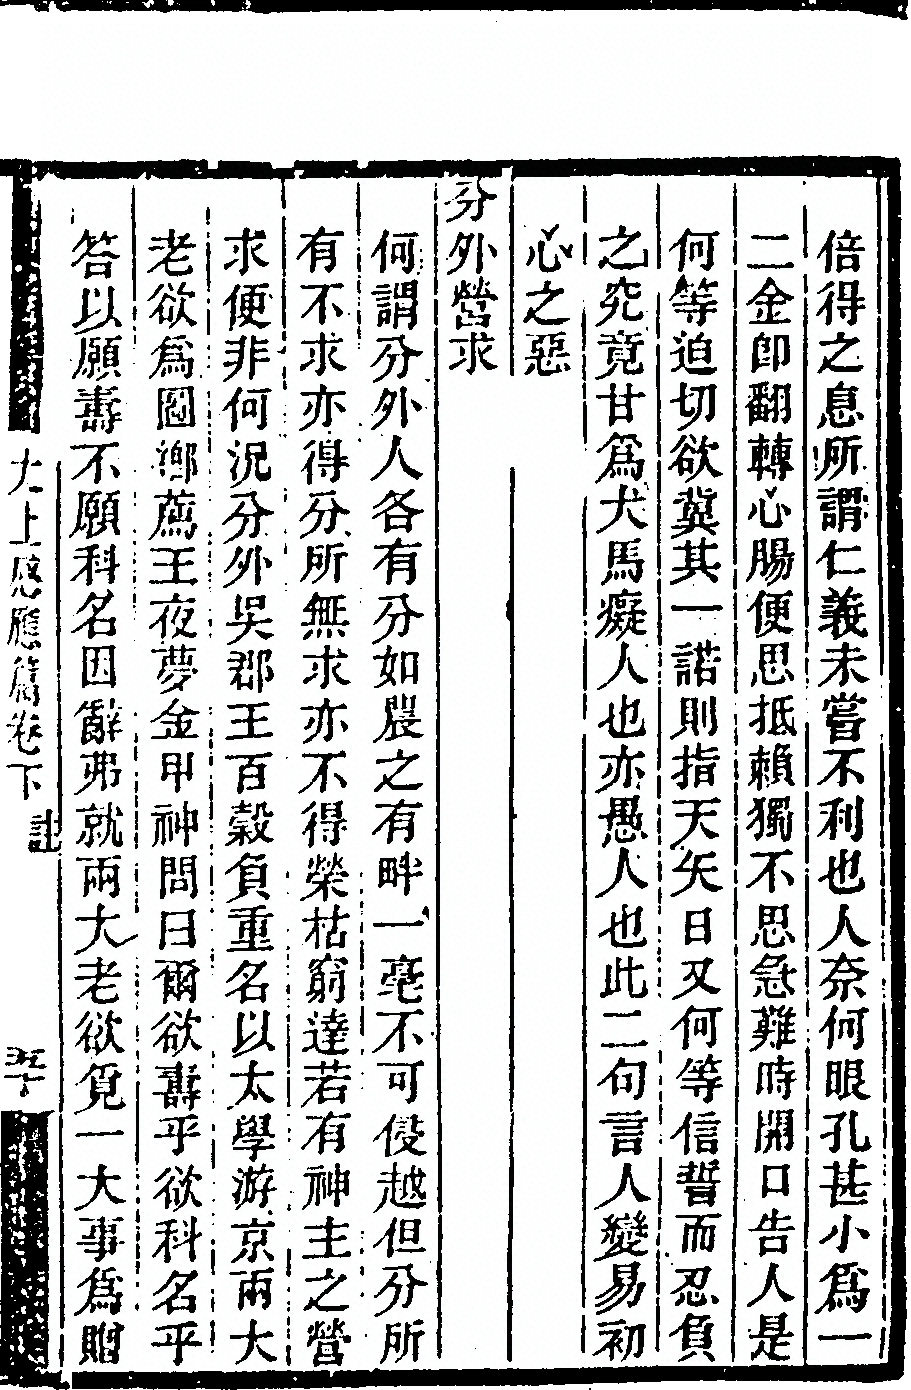 倍得之息所謂仁義未嘗不利也人奈何眼孔甚小爲一
二金卽翻轉心腸便思抵賴獨不思急難時開口告人是
何等迫切欲冀其一諾則指天矢日又何等信誓而忍負
之究竟甘爲犬馬癡人也亦愚人也此二句言人變易初
心之惡
分外營求
何謂分外人各有分如農之有畔一毫不可侵越但分所
有不求亦得分所無求亦不得榮枯窮達若有神主之營
求便非何況分外吳郡王百穀負重名以太學游京兩大
老欲爲圖鄉薦王夜夢金甲神問曰爾欲壽乎欲科名乎
答以願壽不願科名因辭弗就兩大老欲覓一大事爲贈
太上感應篇卷下
註
五十